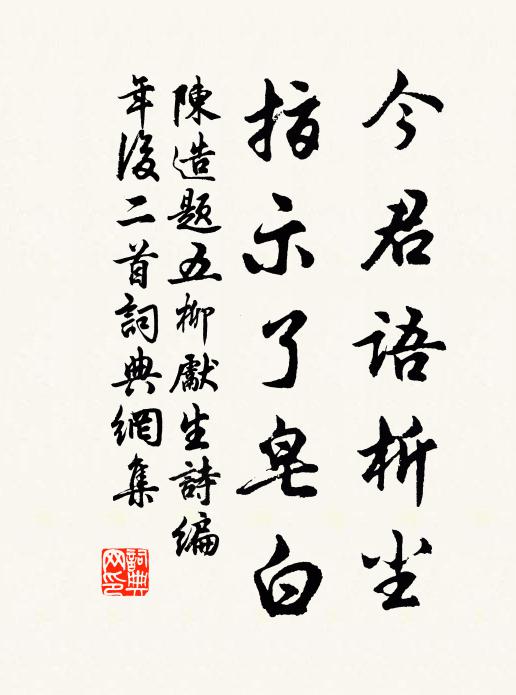 今君語析尘
指示了皂白
陳造題五柳獻生詩編
年後二首詞典網集
詞典网印